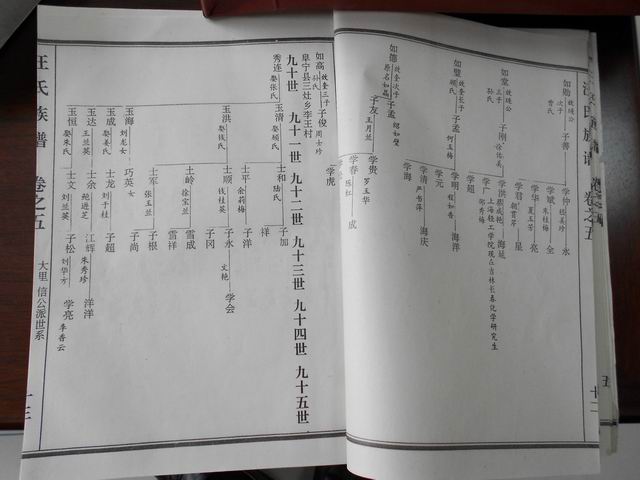 如勋
孙氏
次子
曹氏
子善
学仲 桂美珍
永
学斌 朱桂梅
全
学华 夏玉芳
亮
学君 朝霄芹
星
如堂
三子
孙氏
子刚 徐佑英
学洪 殷成艳
海延
上海轻工学院现在吉林长春化学研究生
学广 邱秀梅
学超
如璧
顾氏
子孟 何玉梅
学明 程和香
海洋
学元
如德
原名如昌
绍如璧
子孟
学清 严书萍
海庆
学海
子友 王月兰
学贵 罗玉华
学春 陈红
成
学虎
如高
孙氏
子俊 周士珍
阜宁县三灶乡李王村
九十世 九十一世 九十二世 九十三世 九十四世 九十五世
秀连 娶张氏
玉清 娶顾氏
士和 陆氏
子加
祥
玉洪 娶钱氏
士平 余莉梅
子洋
士顺 钱桂英
子永 文艳
学会
子冈
士岭 徐宝兰
雪成
雪祥
士军 张玉兰
子根
子尚
玉海 刘龙女
巧英 女
玉成 娶姜氏
士龙 刘干桂
子超
玉达 王兰英
士余 鲍进芝
江辉 朱秀珍
洋洋
玉恒 娶朱氏
士文 刘兰英
子松 刘华方
学亮 李香云
汪氏族谱 卷之五 大里 信公派世系 十三